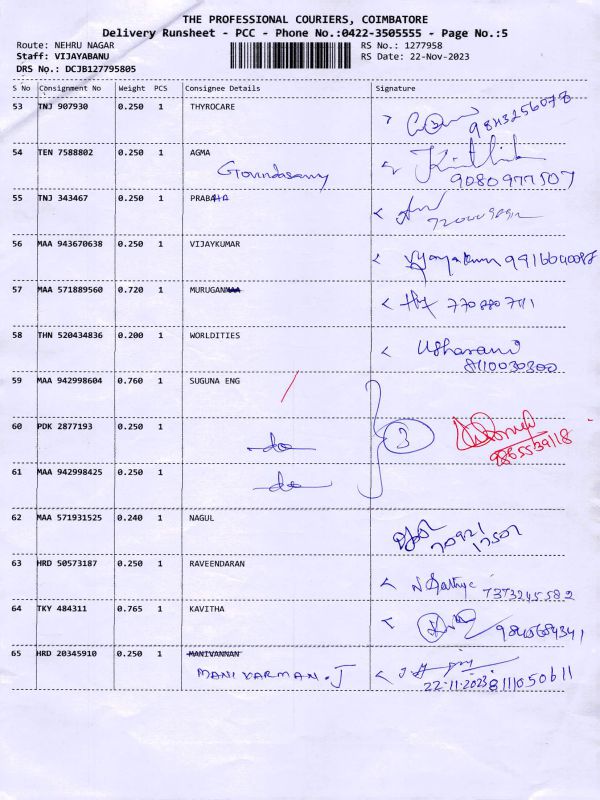 THE PROFESSIONAL COURIERS, COIMBATORE
Delivery Runsheet - PCC - Phone No.:0422-3505555 - Page No.:5
Route: NEHRU NAGAR RS No.: 1277958
Staff: VIJAYABANU RS Date: 22-Nov-2023
DRS No.: DCJB127795805
S No Consignment No Weight PCS Consignee Details Signature
53 TNJ 907930 0.250 1 THYROCARE
9843256078
54 TEN 7588802 0.250 1 AGMA
Govindasamy
9080977507
55 TNJ 343467 0.250 1 PRABHA
56 MAA 943670638 0.250 1 VIJAYKUMAR
Vijayakumar
57 MAA 571889560 0.720 1 MURUGAN
58 THN 520434836 0.200 1 WORLDITIES
Usharani
8110030300
59 MAA 942998604 0.760 1 SUGUNA ENG
60 PDK 2877193 0.250 1
do
3
9865539118
61 MAA 942998425 0.250 1
do
62 MAA 571931525 0.240 1 NAGUL
70921
17507
63 HRD 50573187 0.250 1 RAVEENDARAN
7373245582
64 TKY 484311 0.765 1 KAVITHA
65 HRD 20345910 0.250 1 MANIVANNAN
MANIVARMAN.J
22.11.2023 8111050611